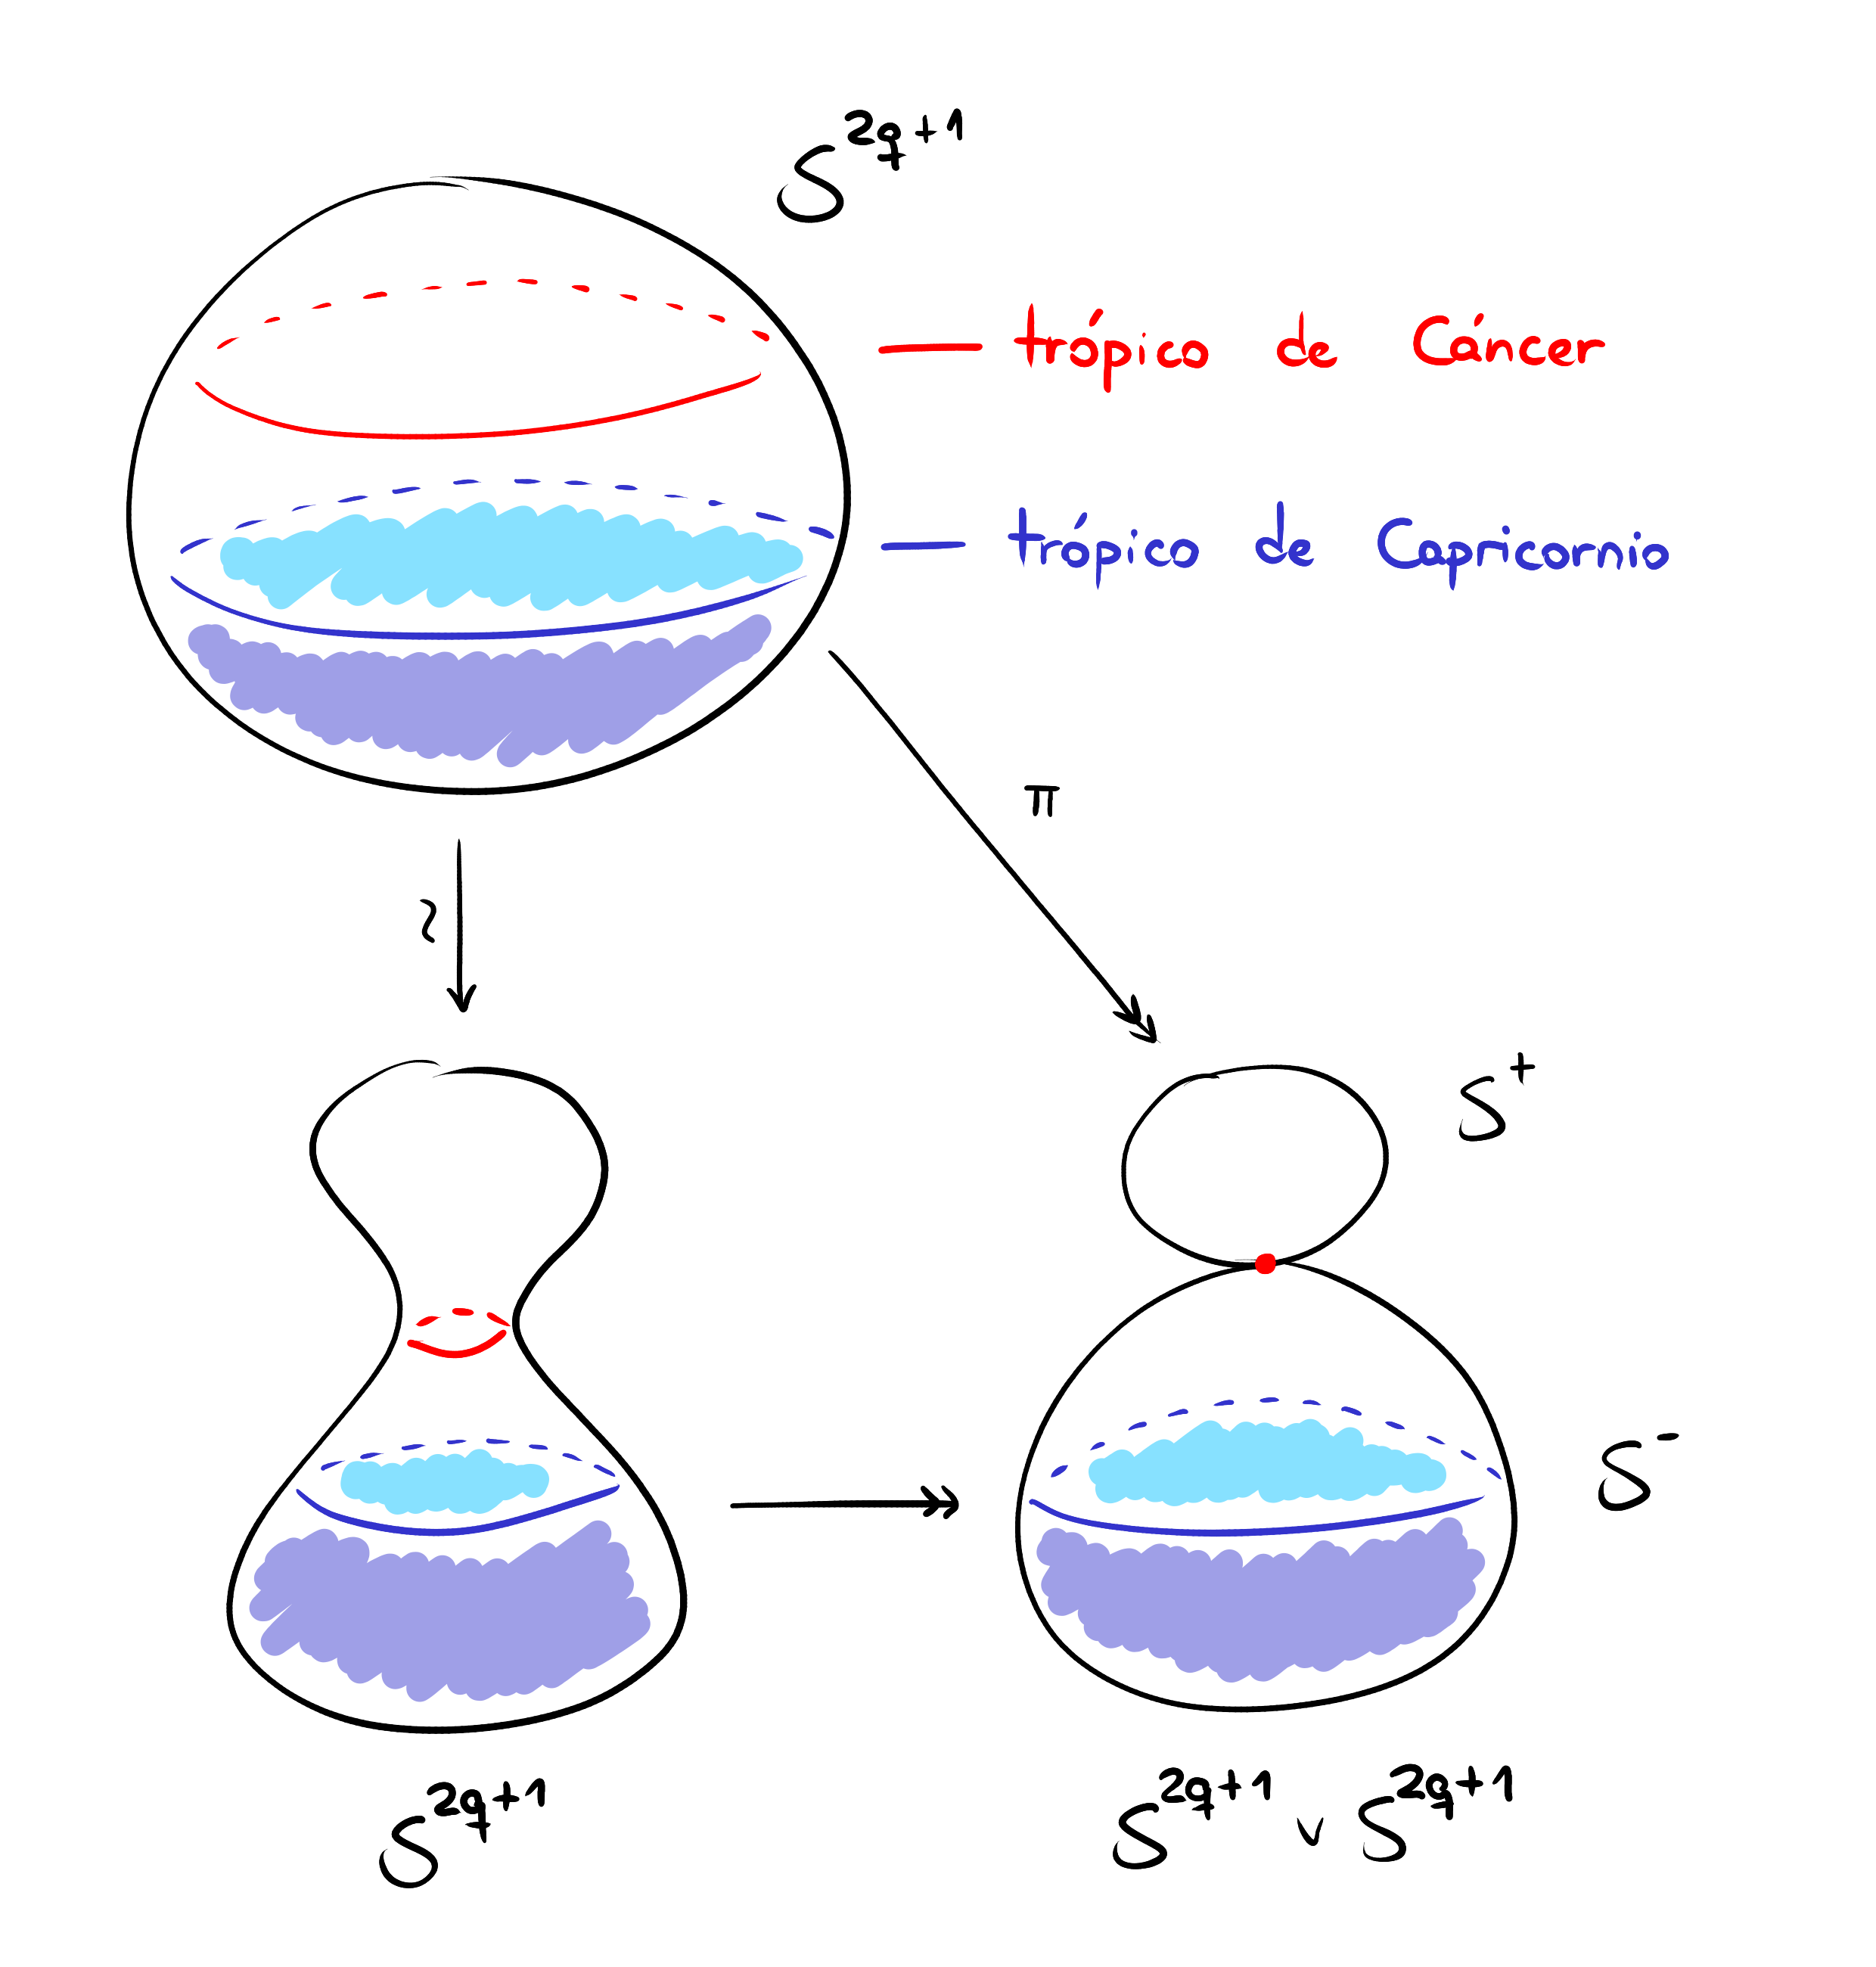 S^{2q+1}
trópico de Cáncer
trópico de Capricornio
π
~
S^+
S^-
S^{2q+1}
S^{2q+1} ∨ S^{2q+1}